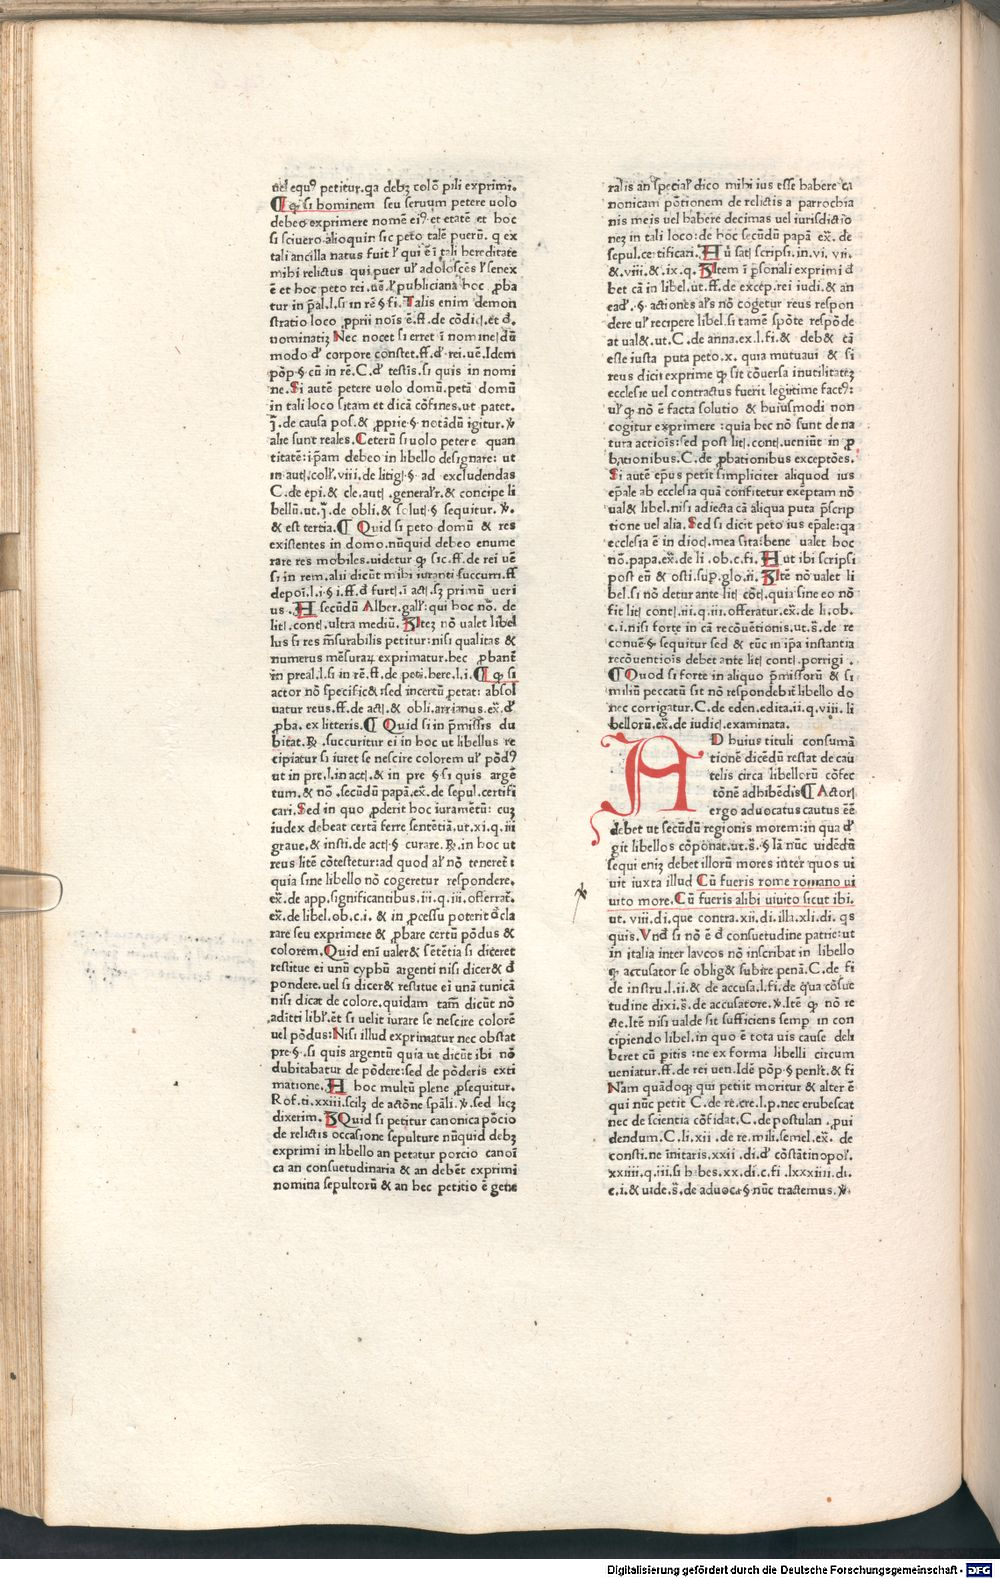 uel equꝰ petitur.qa debꝫ colō pili exprimi.
¶ ꝙ si hominem seu seruum petere uolo
debeo exprimere nomē eiꝰ et etatē et hoc
si sciuero alioquin sic peto talē puerū. q ex
tali ancilla natus fuit ł qui ē ī tali hereditate
mihi relictus qui puer uł adolescēs ł senex
ē et hoc peto rei.uē.ł publiciana hoc ꝓba
tur in p̄al.l.si in rē § fi. Talis enim demon
stratio loco ꝓprii noīs ē.ff.de cōdic.et d.
nominatiꝫ Nec nocet si erret ī nomine dū
modo de corpore constet.ff.d rei.uē.Idem
pōp § cū in rē.C.d testis.si quis in nomi
ne. Si autē petere uolo domū.petā domū
in tali loco sitam et dicā cōfines.ut patet.
j. de causa pos.& ꝓprie § notādū igitur. ꝟ
alie sunt reales. Ceterū si uolo petere quan
titatē:ip̄am debeo in libello designare: ut
in aut.coll'.viii.de litig. § ad excludendas
C.de epi.& cle.aut .generalr.& concipe li
bellū.ut.j.de obli.& solut § sequitur. ꝟ.
& est tertia. ¶ Quid si peto domū & res
existentes in domo.nūquid debeo enume
rare res mobiles.uidetur ꝙ sic.ff.de rei uē
si in rem.alii dicūt mihi iuranti succurri.ff
depoi.l.i § i.ff.d furt.ī act.sꝫ primū ueri
us. H secūdū Alber.gall':qui hoc nō. de
lit.cont.ultra mediū. B Iteꝫ nō ualet libel
lus si res mēsurabilis petitur:nisi qualitas &
numerus mēsuraꝝ exprimatur.hec ꝓbant
in preal.l.si in rē.ff.de peti.here.l.i. ¶ ꝙ si
actor nō specific& :sed incertū petat: absol
uatur reus.ff.de act.& obli.arrianus.ex.d
ꝓba. ex litteris. ¶ Quid si in p̄missis du
bitat. ℞ .succuritur ei in hoc ut libellus re
cipiatur si iuret se nescire colorem uł pōdꝰ
ut in pre.l.in act.& in pre § si quis argē
tum.& nō .secūdū papā.ex.de sepul.certifi
cari. Sed in quo ꝓderit hoc iuramētū: cuꝫ
iudex debeat certā ferre sentētiā.ut.xi.q.iii
graue.& insti.de act § curare. ℞.in hoc ut
reus litē cōtestetur:ad quod al' nō teneret
quia sine libello nō cogeretur respondere.
ex.de app.significantibus.iii.q.iii.offerrat.
ex.de libel.ob.c.i. & in ꝓcessu poterit decla
rare seu exprimere & ꝓbare certū pōdus &
colorem. Quid eni ualer& sētētia si diceret
restitue ei unū cyphū argenti nisi dicer& d
pondere.uel si dicer& restitue ei unā tunicā
nisi dicat de colore.quidam tam dicūt nō
aditti libł.et si uelit iurare se nescire colorē
uel pōdus: Nisi illud exprimatur nec obstat
pre § .si quis argentū quia ut dicūt ibi nō
dubitabatur de pōdere:sed de pōderis exti
matione. H hoc multū plene ꝓsequitur.
Rof.ti.xxiii.scilꝫ de actōne sp̄ali. ꝟ.sed licꝫ
dixerim. B Quid si petitur canonica porcio
de relictis occasione sepulture nūquid debꝫ
exprimi in libello an petatur porcio canoi
ca an consuetudinaria & an debēt exprimi
nomina sepultorū & an hec petitio ē gene
ralis an special' dico mihi ius esse habere ca
nonicam portionem de relictis a parrochia
nis meis uel habere decimas uel iurisdictio
neꝫ in tali loco:de hoc secūdū papā ex. de
sepul.certificari. H ū sat scripsi.in.vi. vii.
&.viii.&.ix.q. B Item ī p̄sonali exprimi d
bet cā in libel.ut.ff.de excep.rei iudi.& an
ead'.§ actiones al's nō cogetur reus respon
dere uł recipere libel.si tamē spōte respōde
at ual&.ut.C.de anna.ex.l.fi.& deb& cā
esse iusta puta peto.x. quia mutuaui & si
reus dicit exprime ꝙ sit cōuersa in utilitateꝫ
ecclesie uel contractus fuerit legitime factꝰ:
uł ꝙ nō ē facta solutio & huiusmodi non
cogitur exprimere :quia hec nō sunt de na
tura actiōis:sed post lit.cont.ueniūt in ꝓ
bationibus.C.de ꝓbationibus exceptōes.
Si autē ep̄us petit simpliciter aliquod ius
ep̄ale ab ecclesia quā confitetur exēptam nō
ual& libel.nisi adiecta cā aliqua puta p̄scrip
tione uel alia. Sed si dicit peto ius ep̄ale:qa
ecclesia ē in dioc.mea sita:bene ualet hoc
nō.papa.ex.de li .ob.c.fi. H ut ibi scripsi
post eū & osti.sup.glo.ii. B Itē nō ualet li
bel.si nō detur ante lit cōt.quia sine eo nō
fit lit cont.iii.q.iii.offeratur.ex.de li.ob.
c.i.nisi forte in cā recōuētionis.ut.s̄.de re
conuē § sequitur sed & tūc in ip̄a instantia
recōuentiois debet ante lit cont.porrigi .
¶ Quod si forte in aliquo p̄missorū & si
miliū peccatū sit nō respondebit libello do
nec corrigatur.C.de eden.edita.ii.q.viii. li
bellorū.ex.de iudic.examinata.
AD huius tituli consumā
tionē dicēdū restat de cau
telis circa libellorū cōfec
tōnē adhibēdis ¶ Actor
ergo aduocatus cautus ēē
debet ut secūdū regionis morem:in qua d
git libellos cōponat.ut.s̄.§ Iā nūc uidēdū
sequi eniꝫ debet illorū mores inter quos ui
uit iuxta illud Cū fueris rome romano ui
uito more. Cū fueris alibi uiuito sicut ibi.
ut. viii.di.que contra.xii.di.illa.xli.di. qs
quis. Vnd si nō ē d consuetudine patrie:ut
in italia inter laycos nō inscribat in libello
ꝙ accusator se oblig& subire penā.C.de fi
de instru.l.ii.& de accusa.l.fi.de qua cōsue
tudine dixi.s̄.de accusatore. ꝟ.Itē ꝙ nō re
cte.Itē nisi ualde sit sufficiens semp in con
cipiendo libel.in quo ē tota uis cause deli
beret cū pitis :ne ex forma libelli circum
ueniatur.ff.de rei uen.Idē pōp § penłt.& fi
Nam quādoqꝫ qui petiit moritur & alter ē
qui nūc petit C.de re.cre.l.p.nec erubescat
nec de scientia cōfidat.C.de postulan .ꝓui
dendum.C.li.xii .de re.mili.semel.ex. de
consti.ne īnitaris.xxii .di.d' cōstātinopol'.
xxiiii.q.iii.si habes.xx.di.c.fi .lxxxiiii.di.
c.i.& uide.s̄.de aduoca § nūc tractemus. ꝟ.
Digitalisierung gefördert durch die Deutsche Forschungsgemeinschaft - DFG